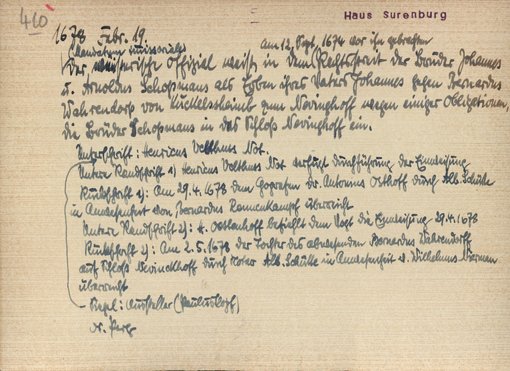 410
Haus Surenburg
1678 Febr. 19.
(Mandatum immissoriale) am 12. Sept. 1674 vor ihn gebrachten
Der münsterische Offizial weist in dem Rechtsstreit der Brüder Johannes
u. Arnoldus Schopmans als Erben ihres Vaters Johannes gegen Bernardus
Wahrendorp von zum Nevinghoff wegen einiger Obligationen,
die Brüder Schopmans in das Schloß Nevinghoff ein.
Unterschrift: Henricus Not.
Untere Randschrift 1) Henricus Not. verfügt Durchführung der Einweisung
Rückschrift 1): Am 29.4.1678 dem Gografen Dr. Antonius Osthoff durch Alb. Schütte
in Anwesenheit von Bernardus überreicht
Untere Randschrift 2): A. Ostenhoff befiehlt dem Vogt die Einweisung 29.4.1678
Rückschrift 2): Am 2.5.1678 der Tochter des abwesenden Bernardus Wahrendorff
auf Schloß Nevinckhoff durch Alb. Schütte in Anwesenheit v. Wilhelmus
überreicht
Siegel: Aussteller (Pauluskopf)
Or. Perg.